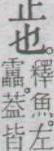 止也。
釋魚。左
靁葢皆